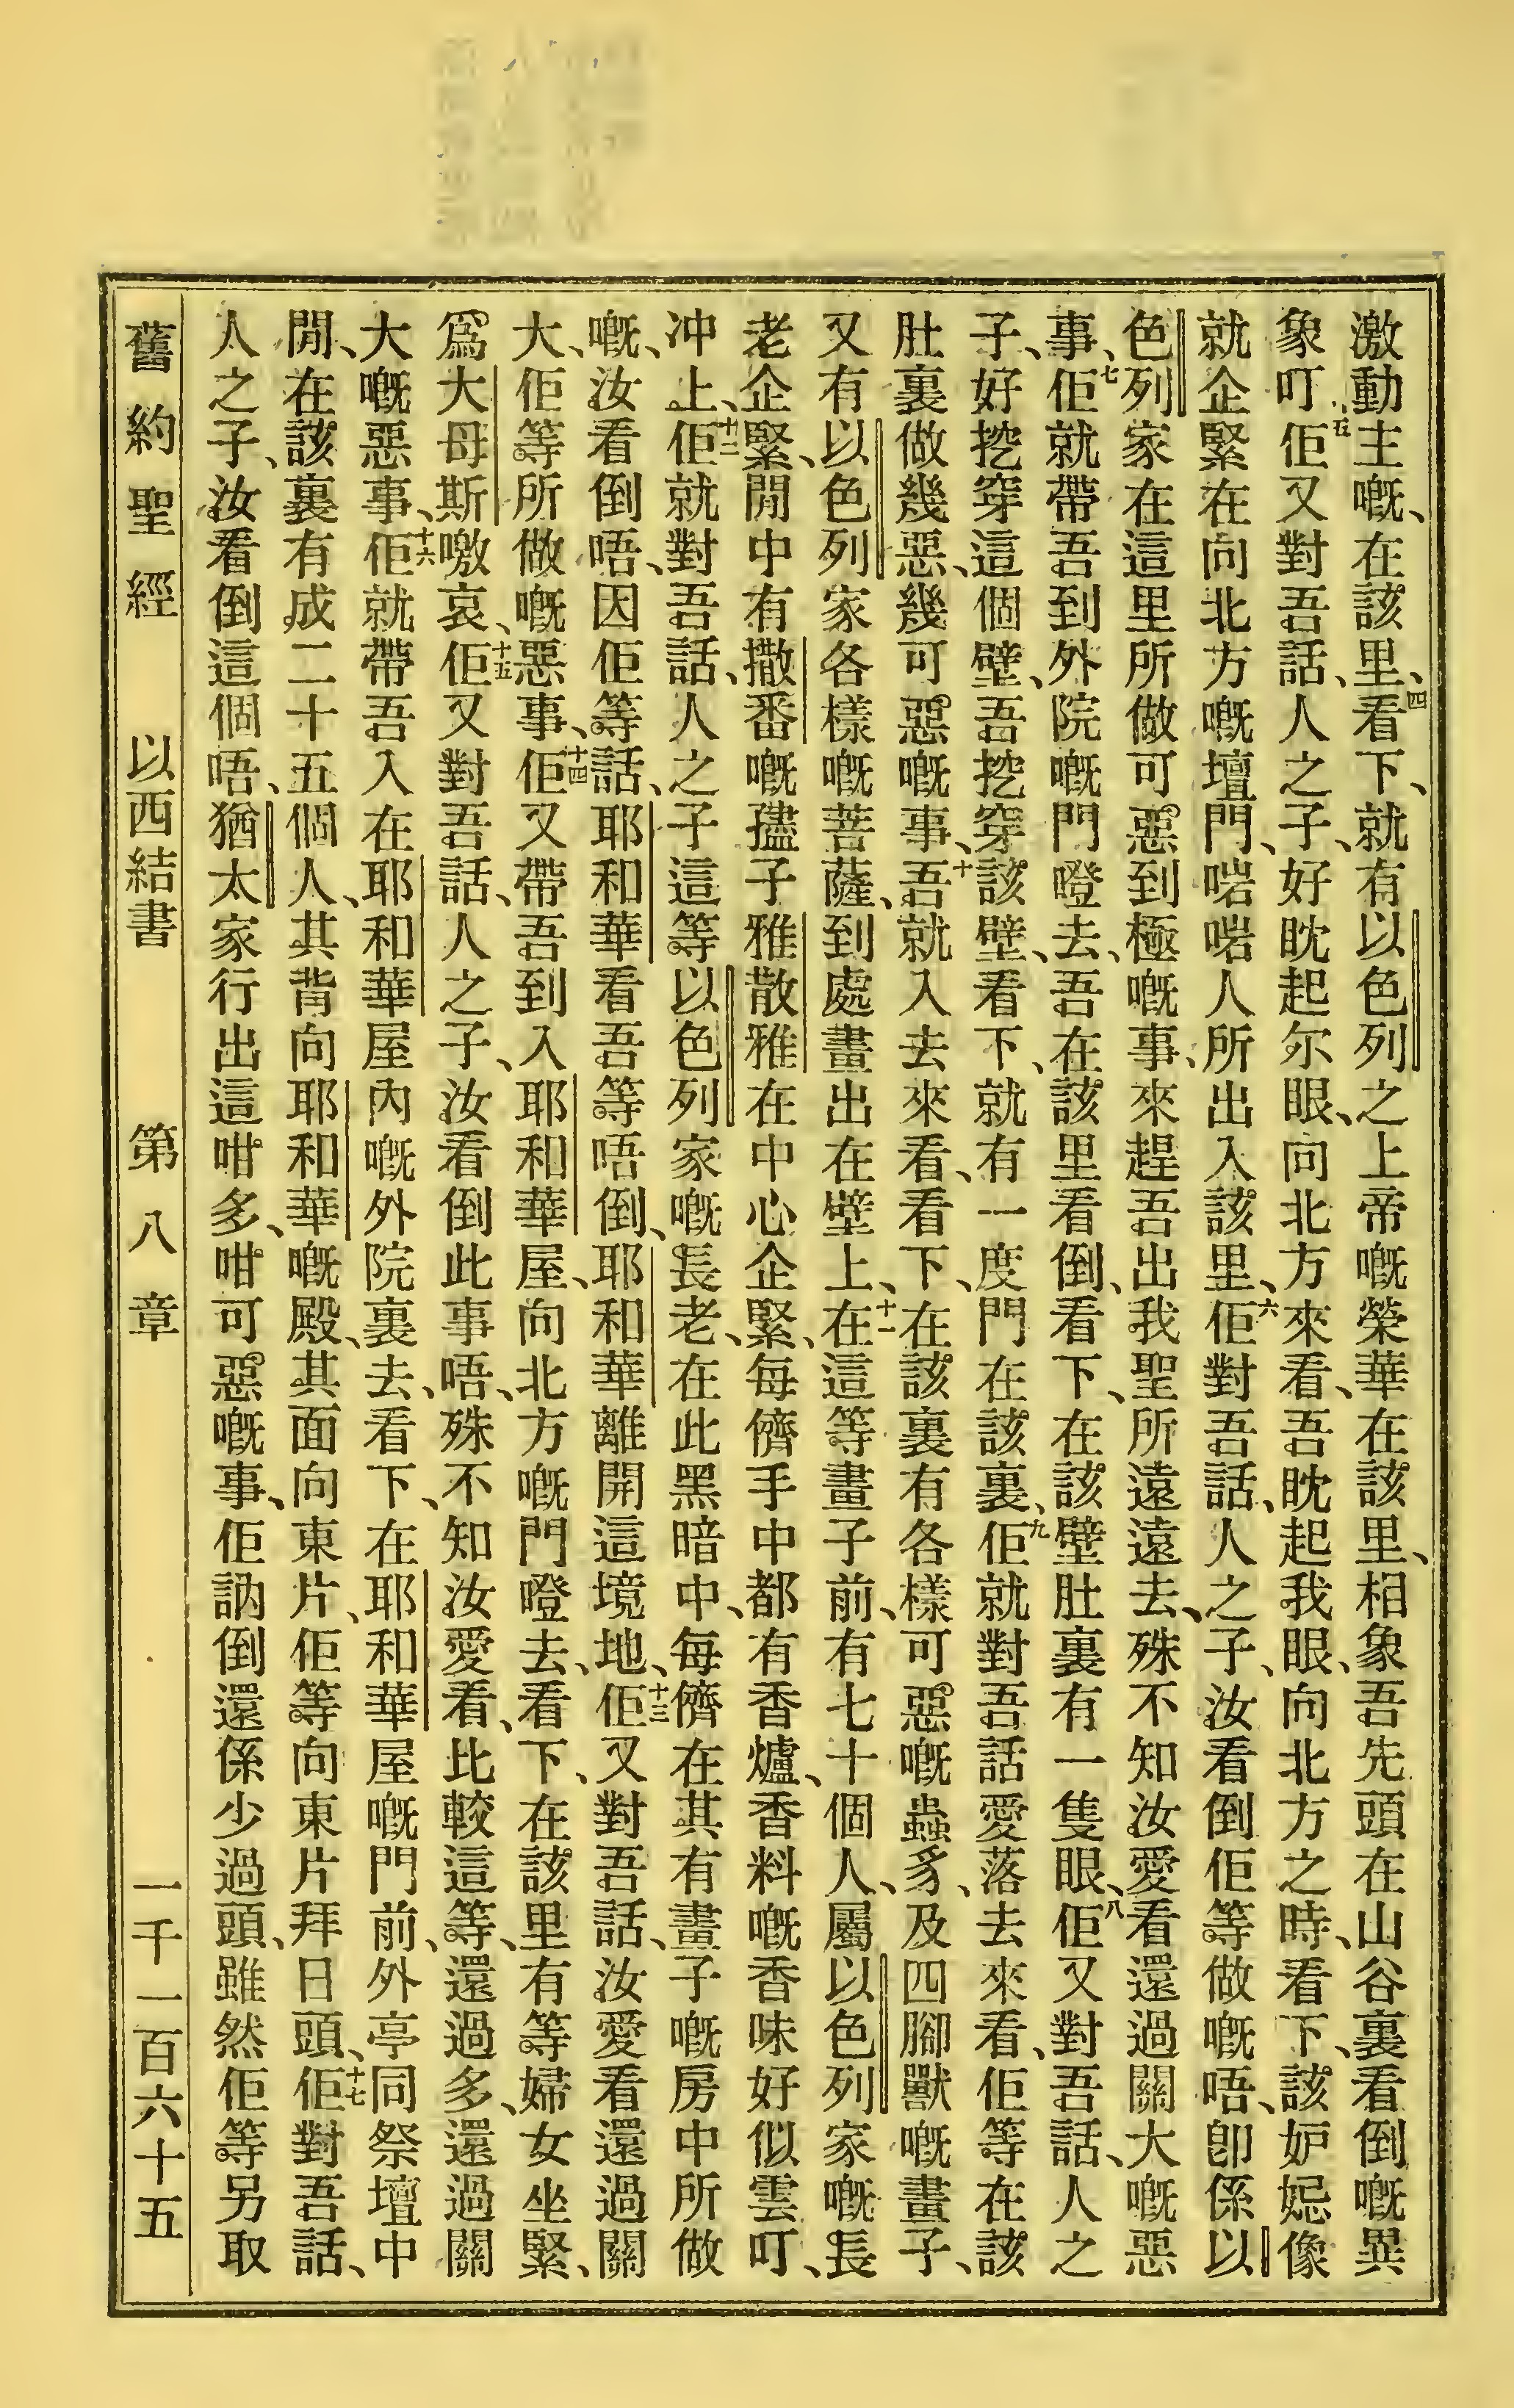 激動主嘅、在該里、四看下、就有以色列之上帝嘅榮華在該里、相象吾先頭在山谷裏看倒嘅異
象叮、五佢又對吾話、人之子、好眈起尔眼、向北方來看、吾眈起我眼、向北方之時、看下、該妒妮像
就企緊在向北方嘅壇門、啱啱人所出入該里、六佢對吾話、人之子、汝看倒佢等做嘅唔、卽係以
色列家在這里所做可惡到極嘅事、來趕吾出我聖所遠遠去、殊不知汝愛看還過關大嘅惡
事、七佢就帶吾到外院嘅門嶝去、吾在該里看倒、看下、在該壁肚裏有一隻眼、八佢又對吾話、人之
子、好挖穿這個壁、吾挖穿該壁、看下、就有一度門在該裏、九佢就對吾話愛落去來看、佢等在該
肚裏做幾惡、幾可惡嘅事、十吾就入去來看、看下、在該裏有各樣可惡嘅蟲豸、及四腳獸嘅畫子、
又有以色列家各樣嘅菩薩、到處畫出在壁上、十一在這等畫子前、有七十個人、屬以色列家嘅長
老企緊、閒中有撒番嘅𢺳子雅散雅在中心企緊、每儕手中都有香爐、香料嘅香味好似雲叮、
冲上、十二佢就對吾話、人之子這等以色列家嘅長老、在此黑暗中、每儕在其有畫子嘅房中所做
嘅、汝看倒唔、因佢等話、耶和華看吾等唔倒、耶和華離開這境地、十三佢又對吾話、汝愛看還過關
大、佢等所做嘅惡事、十四佢又帶吾到入耶和華屋、向北方嘅門嶝去、看下、在該里有等婦女坐緊、
爲大母斯噭哀、十五佢又對吾話、人之子、汝看倒此事唔、殊不知汝愛看、比較這等、還過多、還過關
大嘅惡事、十六佢就帶吾入在耶和華屋內嘅外院裏去、看下、在耶和華屋嘅門前、外亭同祭壇中
閒、在該裏有成二十五個人、其背向耶和華嘅殿、其面向東片、佢等向東片拜日頭、十七佢對吾話、
人之子、汝看倒這個唔、猶太家行出這咁多、咁可惡嘅事、佢訥倒還係少過頭、雖然佢等另取
舊約聖經　以西結書　第八章　一千一百六十五